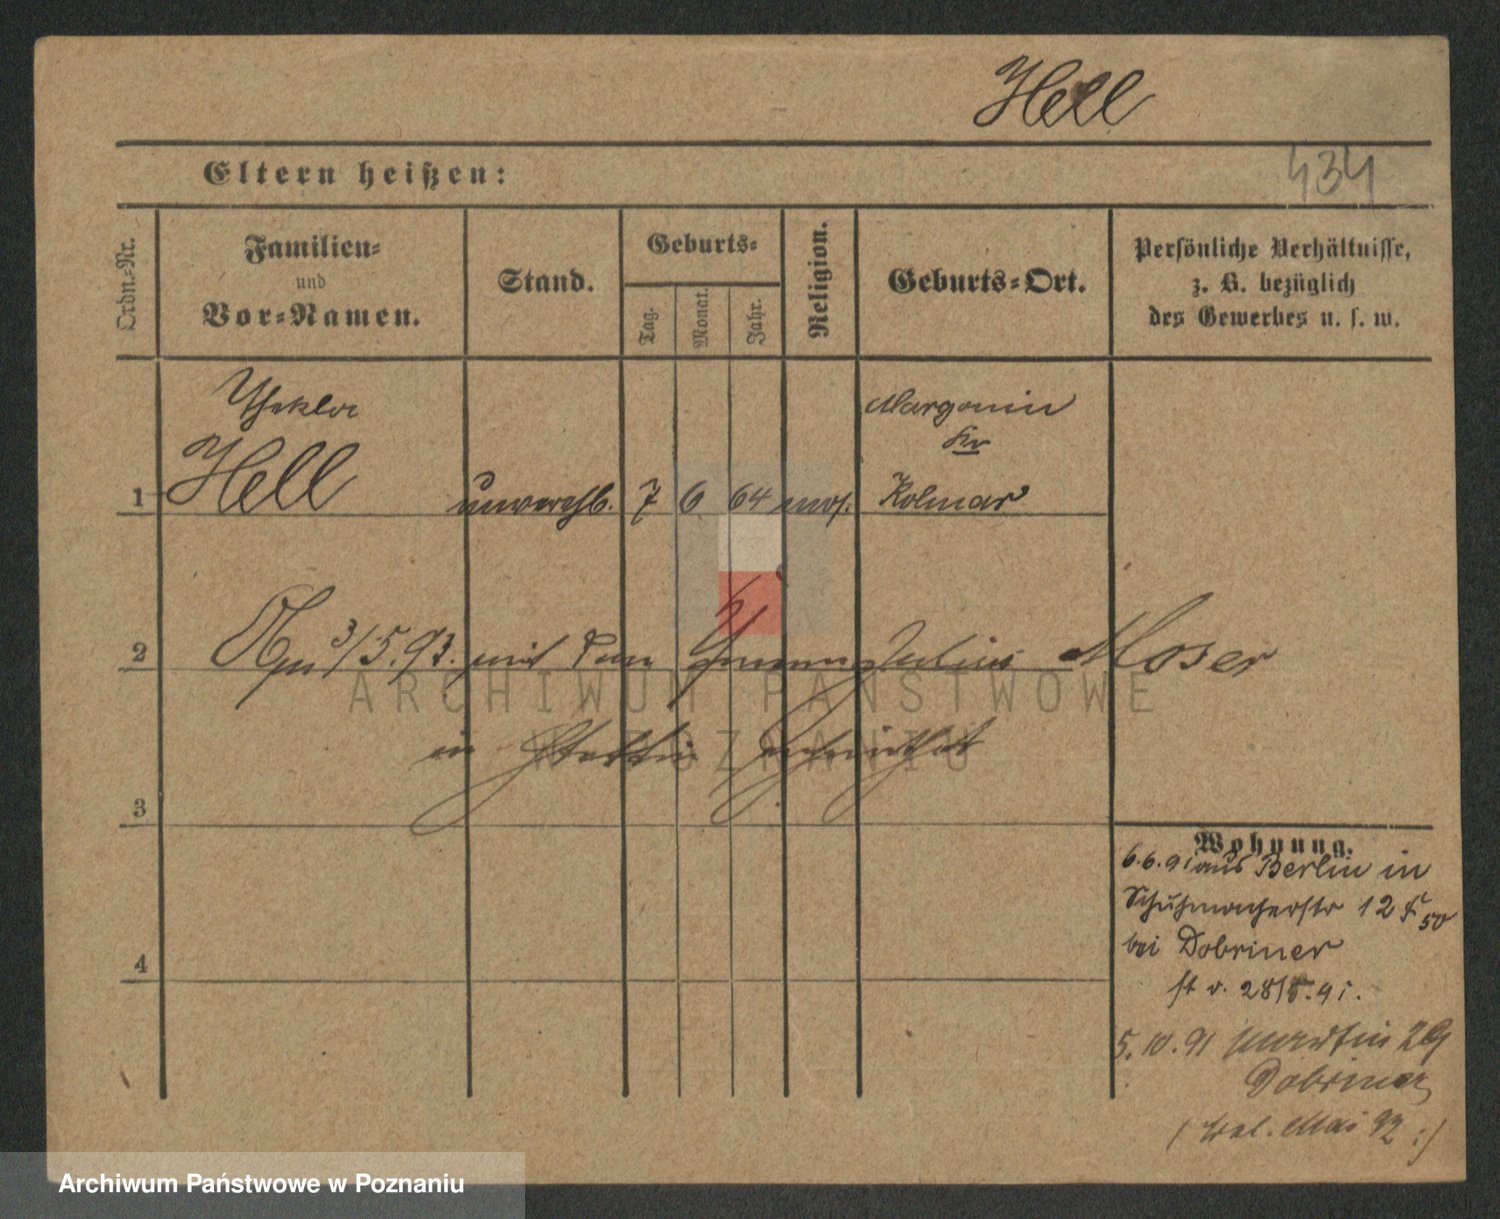 Hell
434
Eltern heißen:
Ordn.-Nr.
Familien-
und
Vor-Namen.
Stand.
Geburts-
Tag.
Monat.
Jahr.
Religion.
Geburts-Ort.
Persönliche Verhältnisse,
z. B. bezüglich
des Gewerbes u. s. w.
Thekla
Hell
Margonin
Kr
1 unverehl. 7 6 64 mos. Kolmar
2 3/5.93. mit dem Julius Moser
in Stettin
3
4
Wohnung.
6.6.91 aus Berlin in
Schuhmacherstr 12 F 50
bei Dobriner
st v. 28/5.91.
5.10.91 29
Dobriner
Mai 92 :)
ARCHIWUM PAŃSTWOWE
W POZNANIU
Archiwum Państwowe w Poznaniu